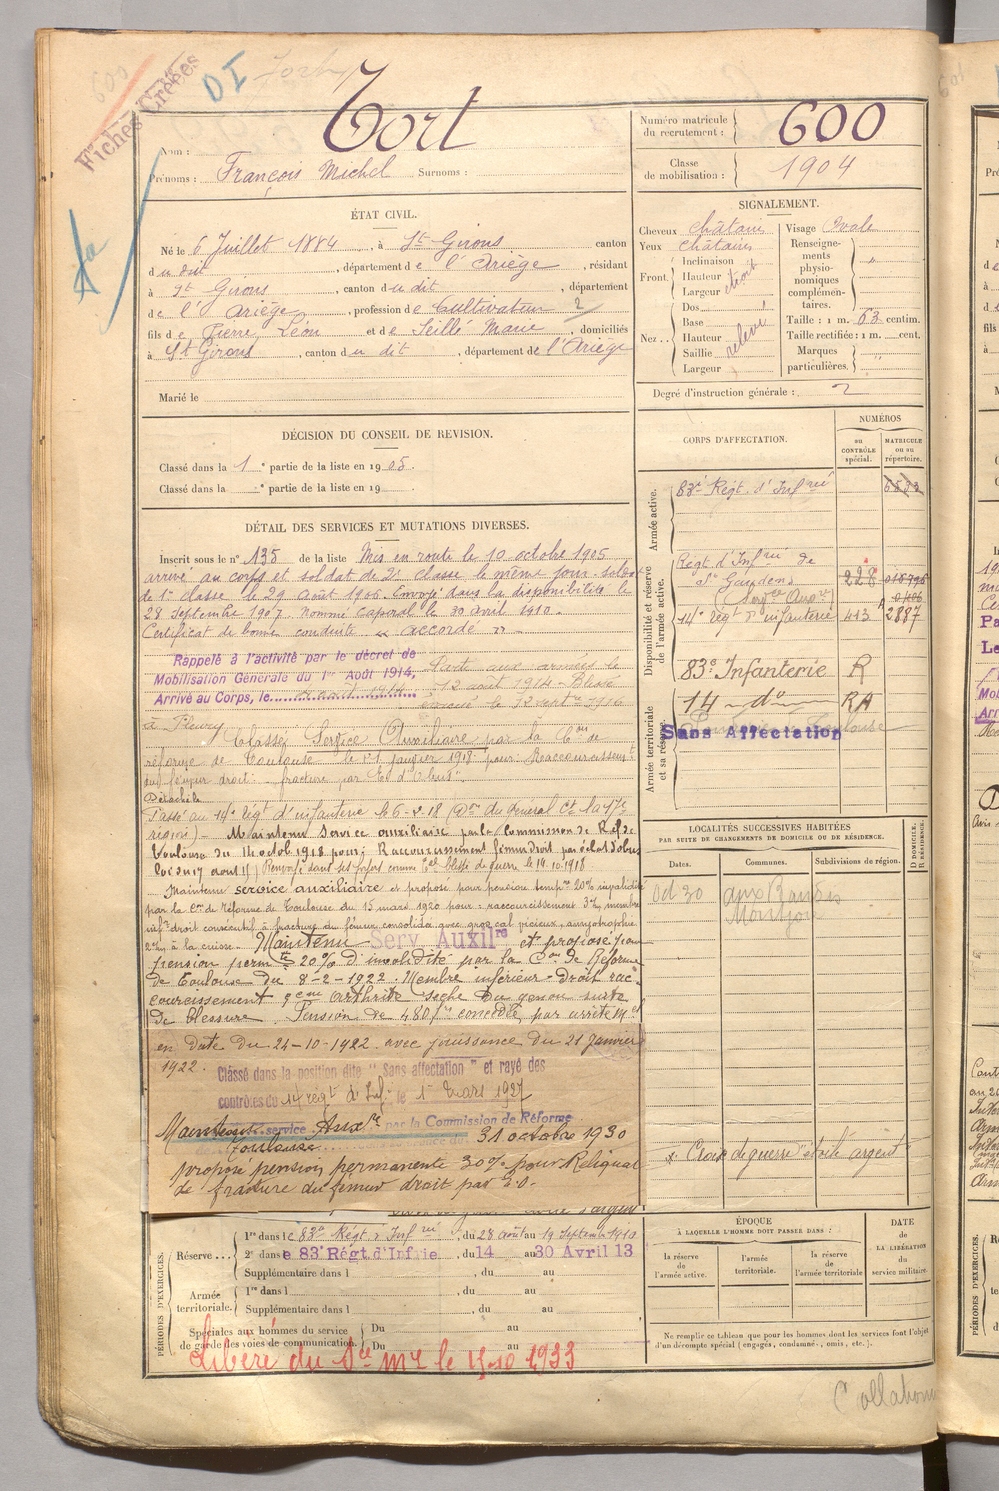 Fiches Créées
DI
600
Tort
Nom :
Prénoms : François Michel Surnoms :
Numéro matricule du recrutement : 600
Classe de mobilisation : 1904
ÉTAT CIVIL.
Né le 6 Juillet 1884, à St Girons canton
du dit, département de l'Ariège, résidant
à St Girons, canton du dit, département
de l'Ariège, profession de Cultivateur 2
fils de Pierre Léon et de Seillé Marie, domiciliés
à St Girons, canton du dit, département de l'Ariège
Marié le
SIGNALEMENT.
Cheveux châtains
Yeux châtains
Front. Inclinaison
Hauteur
Largeur étroit
Nez. Dos
Base relevé
Hauteur
Saillie
Largeur
Visage Ovale
Renseignements physionomiques complémentaires. "
Taille : 1 m. 63 centim.
Taille rectifiée : 1 m. cent.
Marques particulières. "
Degré d'instruction générale : 2
DÉCISION DU CONSEIL DE REVISION.
Classé dans la 1e partie de la liste en 1905.
Classé dans la e partie de la liste en 19
DÉTAIL DES SERVICES ET MUTATIONS DIVERSES.
Inscrit sous le n° 135 de la liste Mis en route le 10 octobre 1905
arrivé au corps et soldat de 2e classe le même jour. soldat
de 1re classe le 29 Août 1906. Envoyé dans la disponibilité le
28 Septembre 1907. Nommé caporal le 30 avril 1910.
Certificat de bonne conduite « accordé »
Rappelé à l'activité par le décret de
Mobilisation Générale du 1er Août 1914,
Arrivé au Corps, le août 1914
Parti aux armées le
12 août 1914 Blessé
le 12 septe 1916
à Fleury
Classé Service Auxiliaire par la Con de
réforme de Toulouse le 21 janvier 1918 pour : Raccourcissement
du fémur droit - fracture par Ecl. d'obus.
Détaché
Passé au 14e Régt d'infanterie le 6-2-18 (Don du Général Ct la 17e
région) - Maintenu service auxiliaire par la Commission de Réf. de
Toulouse du 14 octob 1918 pour : Raccourcissement fémur droit par éclat d'obus
loi du 17 août 15) Renvoyé dans ses foyers comme blessé de guerre le 14.10.1918
Maintenu service auxiliaire et proposé pour pension tempre 20% invalidité
par la Con de Réforme de Toulouse du 15 mars 1920 pour : raccourcissement 3cm membre
infr droit consécutif à fracture du fémur consolidé avec gros cal vicieux, amyotrophie
2cm à la cuisse. Maintenu Serv. Auxilre et proposé pour
pension permte 20% d'invalidité par la Con de Réforme
de Toulouse du 8-2-1922. Membre inférieur droit rac-
courcissement arthrite sèche du genou suite
de blessure. Pension de 480f concédée par arrêté Mel
en date du 24-10-1922 avec jouissance du 21 janvier
1922.
Classé dans la position dite "Sans affectation" et rayé des
contrôles du 14 régt d'Inf. le 1er Mars 1927
Maintenu service Auxre par la Commission de Réforme
Toulouse 31 octobre 1930
proposé pension permanente 30% pour Reliquat
de fracture du fémur droit par E.O.
CORPS D'AFFECTATION.
NUMÉROS
au CONTRÔLE spécial.
MATRICULE ou au répertoire.
Armée active.
83e Régt. d'Infrie 6502
Disponibilité et réserve de l'armée active.
Régt d'Infrie de
St Gaudens 228 018796
(Service Auxre)
14e Régt d'infanterie 443 2887
83e Infanterie R
14 do RA
Armée territoriale et sa réserve.
Sans Affectation
LOCALITÉS SUCCESSIVES HABITÉES
PAR SUITE DE CHANGEMENTS DE DOMICILE OU DE RÉSIDENCE.
Dates. Communes. Subdivisions de région. D DOMICILE. R RÉSIDENCE.
Oct 30
"Croix de guerre" étoile argent
PÉRIODES D'EXERCICES.
Réserve... 1re dans le 83e Régt d'Infrie, du 28 août au 19 Septembre 1910
2e dans le 83e Régt. d'Infrie du 14 au 30 Avril 13
Supplémentaire dans l , du au
Armée territoriale. 1re dans l , du au
Supplémentaire dans l , du au
Spéciales aux hommes du service de garde des voies de communication. Du au
Du au
Libéré du Sce Mre le 15-10 1933
ÉPOQUE
À LAQUELLE L'HOMME DOIT PASSER DANS :
la réserve de l'armée active.
l'armée territoriale.
la réserve de l'armée territoriale
DATE DE LA LIBÉRATION du service militaire.
Ne remplir ce tableau que pour les hommes dont les services font l'objet
d'un décompte spécial (engagés, condamnés, omis, etc.).